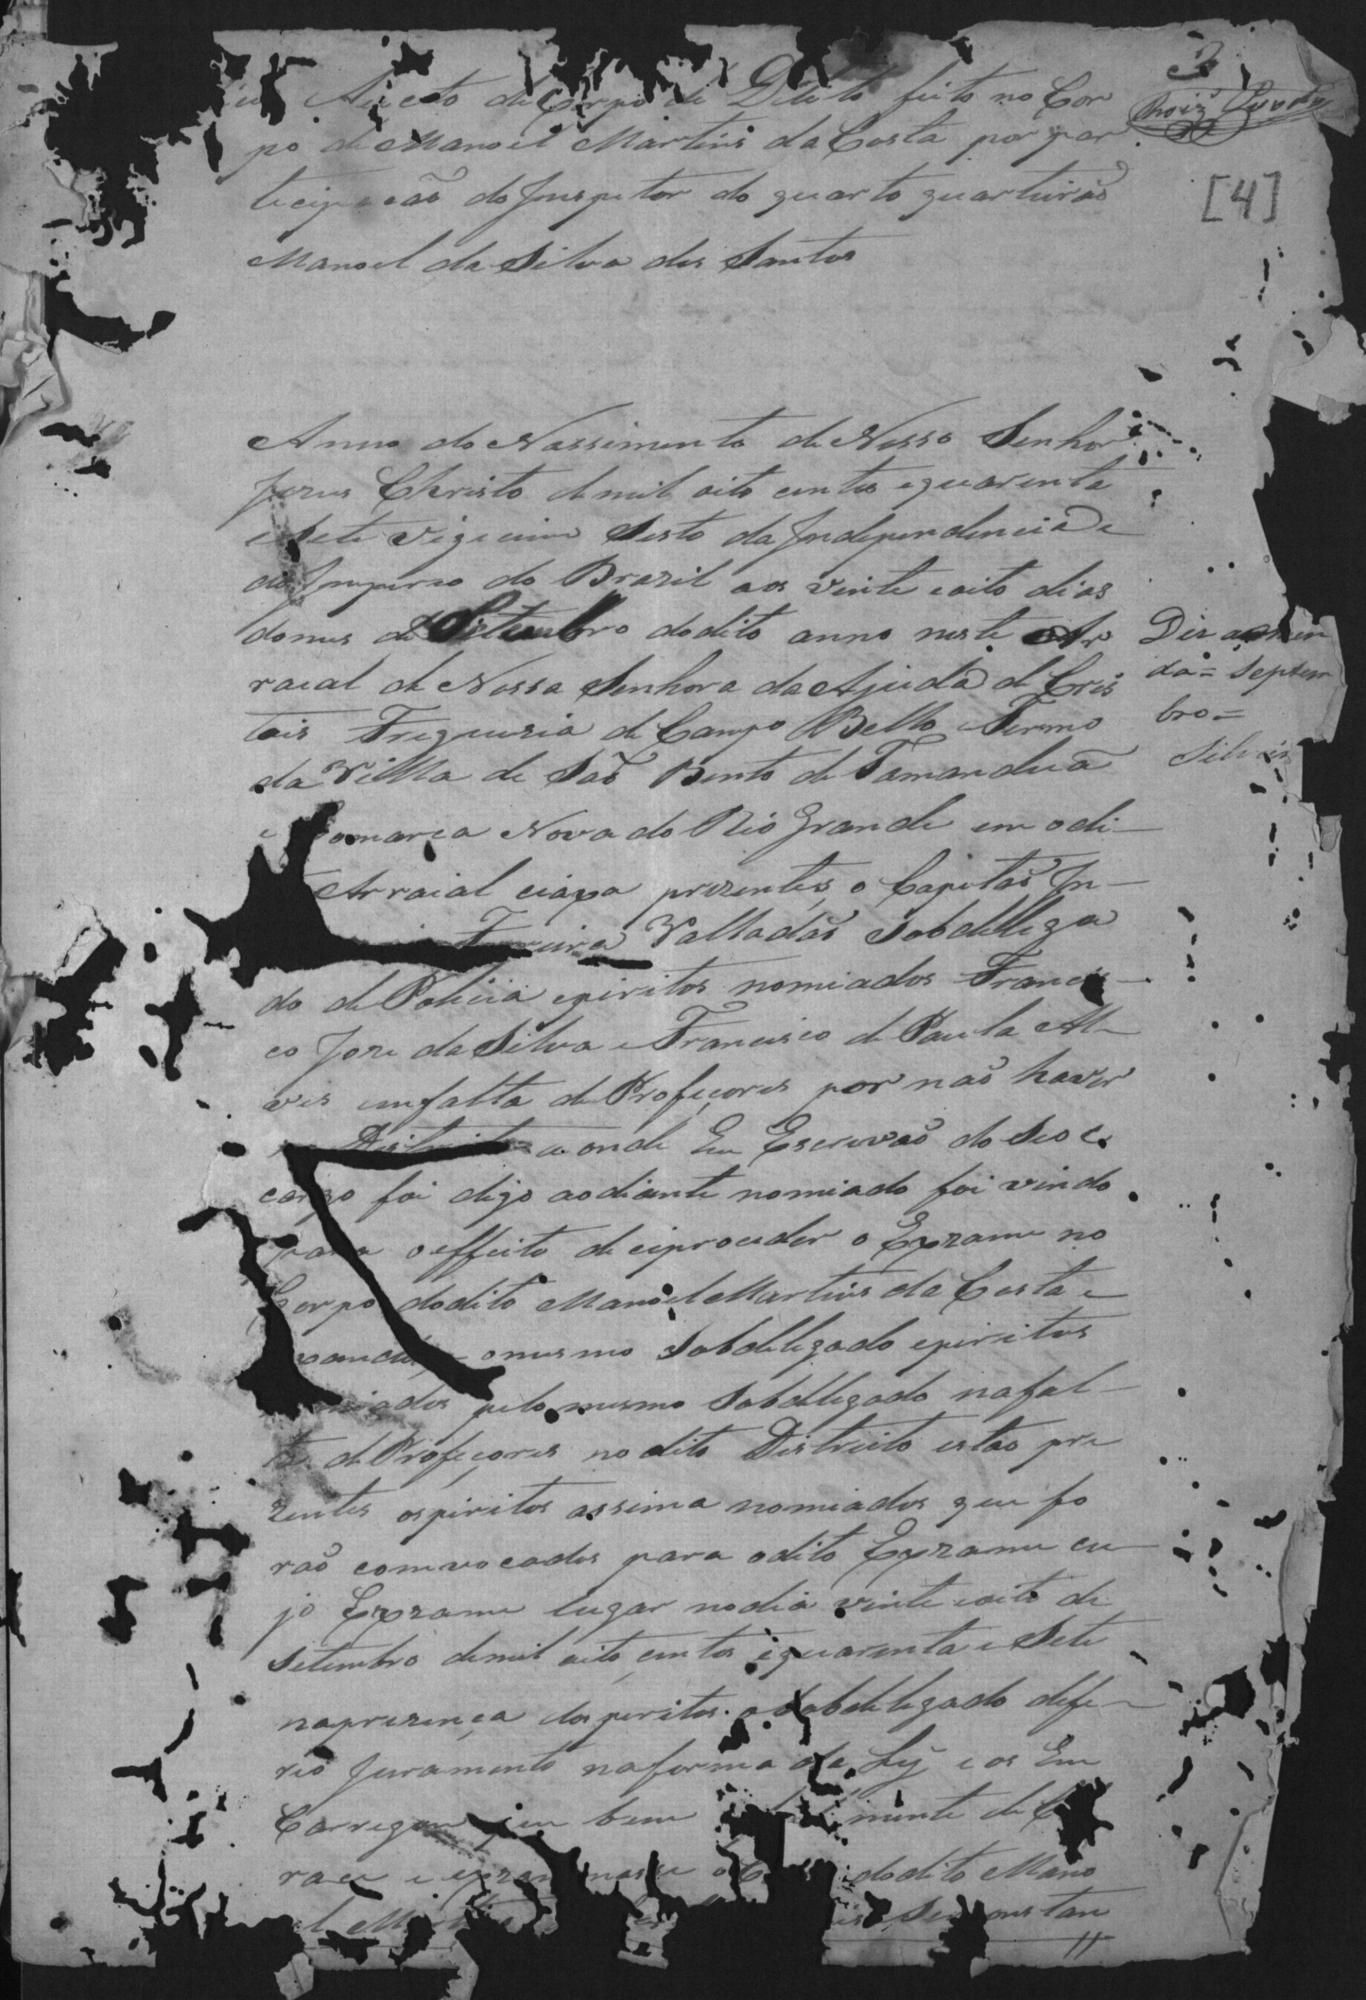 3
Aucto de Corpo de Delito feito no Cor
po de Manoel Martins da Costa por par
tecipacaõ do Jnspetor do quarto quarteiraõ
Manoel da Silva dos Santos
[4]
Anno do Nassimento de Nosso Senhor
Jezus Christo de mil oito centos e quarenta
e Sete Vigecimo Sesto da Jndependencia e
do Jmperio do Brazil aos vinte e oito dias
do mes de Setembro do dito anno neste Ar
raial de Nossa Senhora da Ajuda de Cris
tais Freguezia de Campo Bello e Termo
da Villa de Saõ Bento de Tamanduá
e Comarca Nova do Rio Grande em o di
Arraial e prezentes o Capitaõ Jn
Valladaõ Sobdellega
do de Policia e piritos nomiados Francis
co Joze da Silva e Francisco de Paula Al
ves em falta de Profeçores por naõ haver
Destrito a onde Eu Escrivaõ do Seo
cargo foi digo ao diante nomiado foi vindo
para o effeito de ciproceder o Exzame no
Corpo do dito Manoel Martins da Costa e
o mesmo Sobdelegado e piritos
pelo mesmo Sobdellegado na fal
ta de Profeçores no dito Destrito estaõ pre
zentes os piritos assima nomiados que fo
raõ comvocados para o dito Exzame cu
jo Exzame lugar no dia vinte e oito de
Setembro de mil oito centos e quarenta e Sete
na prezença dos piritos o Sobdellegado defe
rio Juramento na forma da Ley e os En
Carregou que bem mente de C
race e exzaminasse o do dito Mano
el
Diz a emen
da = Septem
bro =